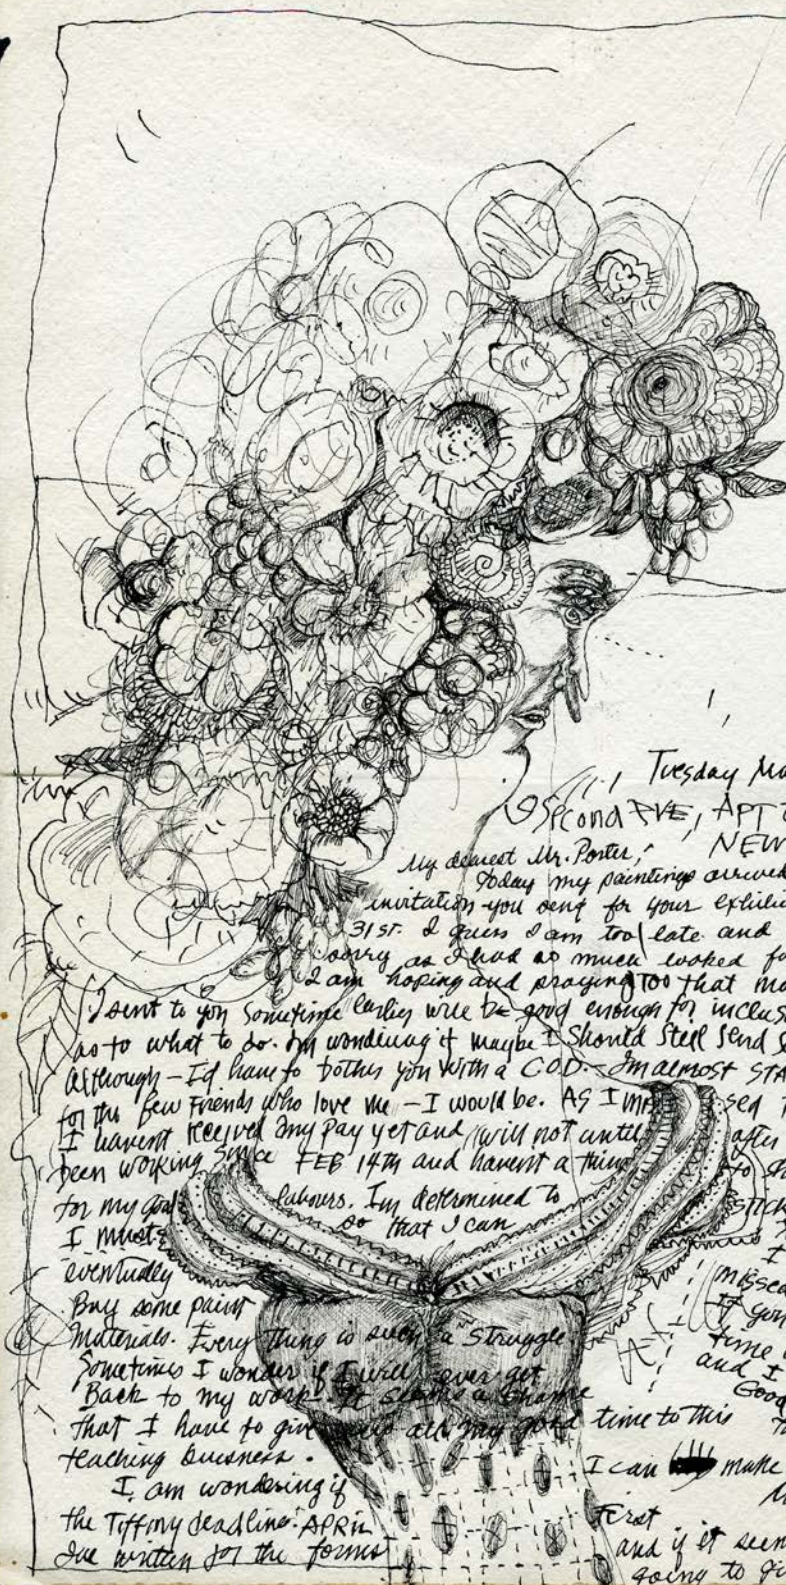 Tuesday Ma
Second AVE, APT
NEW
My dearest Mr. Porter;
Today my paintings arrived
invitation you send for your exhibi
31st. I guess I am too late and
sorry as I had so much looked fo
I am hoping and praying too that ma
I sent to you sometime earlier will be good enough for inclus
as to what to do. Im wondering if maybe I should still send
although – I'd have to bother you with a C.O.D. – Im almost STA
for the few Friends who love me – I would be. AS I sed
I havent received my pay yet and will not until after
been working since FEB 14th and havent a thing to sh
for my labours. Im determined to stick
I must so that I can I
eventually missed
Buy some paint if you
Materials. Everything is such a Struggle time
Sometimes I wonder if I will ever get and I
Back to my work – It seems a shame Good
that I have to give all my good time to this
teaching buisness. I can make
I am wondering if
the Tiffony deadline: APRIL First
Ive written for the forms and if it seem
going to gi